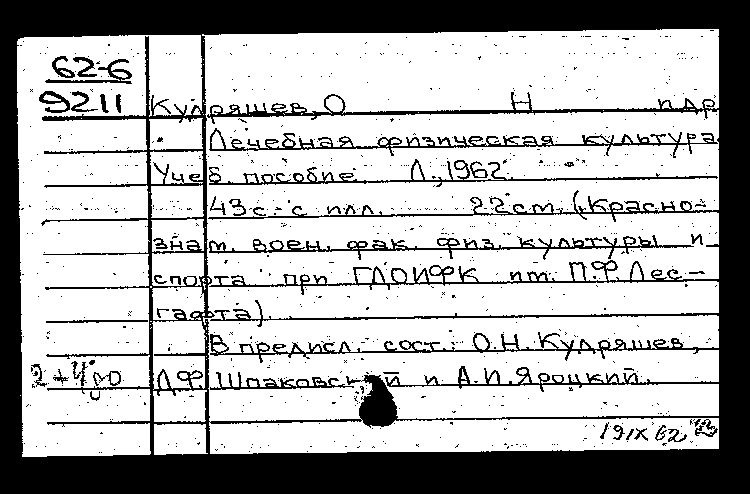 62-6
9211
Кудряшев, О Н и др
Лечебная физическая культура
Учеб. пособие. Л., 1962.
43 с. с илл. 22 см. (Красно-
знам. воен. фак. физ. культуры и
спорта при ГДОИФК им. П.Ф. Лес-
гафта).
В предисл. сост.: О.Н. Кудряшев,
Д.Ф. Шпаковский и А.И. Яроцкий.
19 IX 62